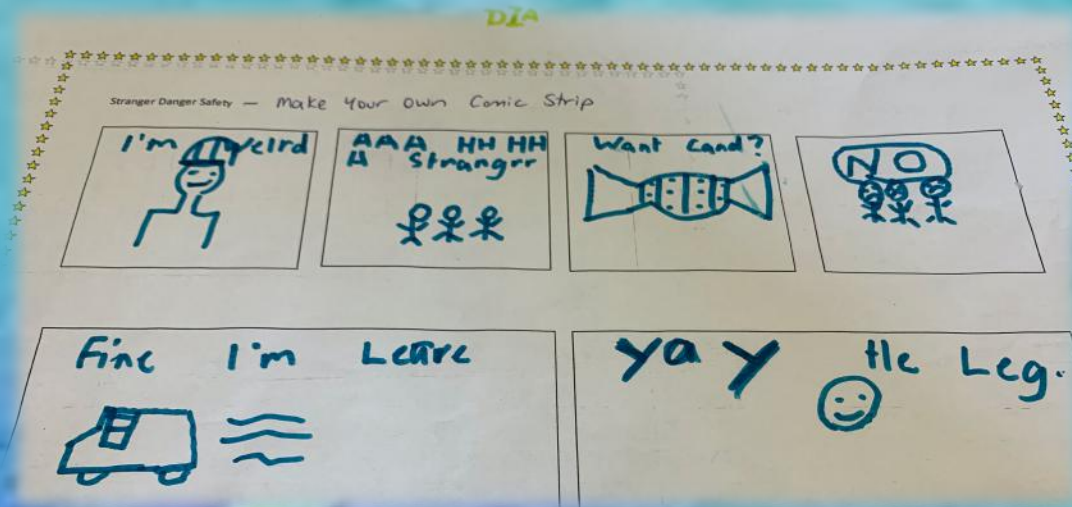 DIA
Stranger Danger Safety – Make Your Own Comic Strip
I'm weird
AAA HH HH
A Strangrr
Want Cand?
NO
Fine I'm Leave
yay He Leg.